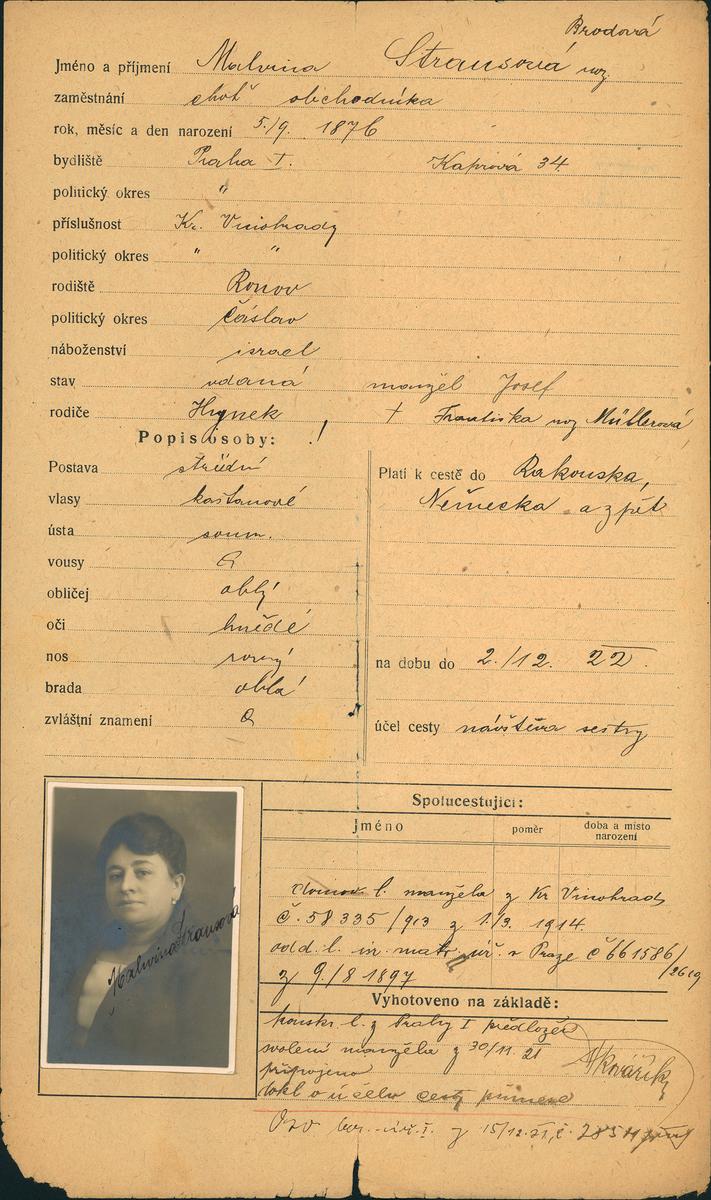 Brodová
Jméno a příjmení Malvina Strausová roz.
zaměstnání choť obchodníka
rok, měsíc a den narození 5./9. 1876
bydliště Praha I. Kaprová 34.
politický okres "
příslušnost Kr. Vinohrady
politický okres " "
rodiště Ronov
politický okres Čáslav
náboženství israel
stav vdaná manžel Josef
rodiče Hynek † Františka roz Müllerová
Popis osoby:
Postava střední
vlasy kaštanové
ústa soum.
vousy
obličej oblý
oči hnědé
nos rovný
brada oblá
zvláštní znamení
Platí k cestě do Rakouska,
Německa a zpět
na dobu do 2./12. 22.
účel cesty návštěva sestry
Malvina Strausová
Spolucestující:
Jméno poměr doba a místo narození
domov. l. manžela z Kr Vinohrad
č. 58335/913 z 1./3. 1914.
odd. l. matr. úř. v Praze č 661586/2619
z 9/8 1897
Vyhotoveno na základě:
konskr. l. z Prahy I předložen
svolení manžela z 30/11. 21
připojeno
o účelu cesty
Kovářík
z 15/12. 21, č.